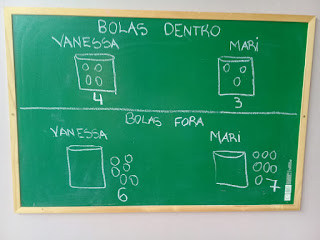 BOLAS DENTRO
VANESSA MARI
4 3
BOLAS FORA
VANESSA MARI
6 7